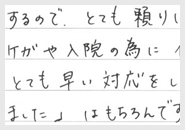 するので、とても頼りに
ケガや入院の為に
とても早い対応をし
ました」はもちろんです